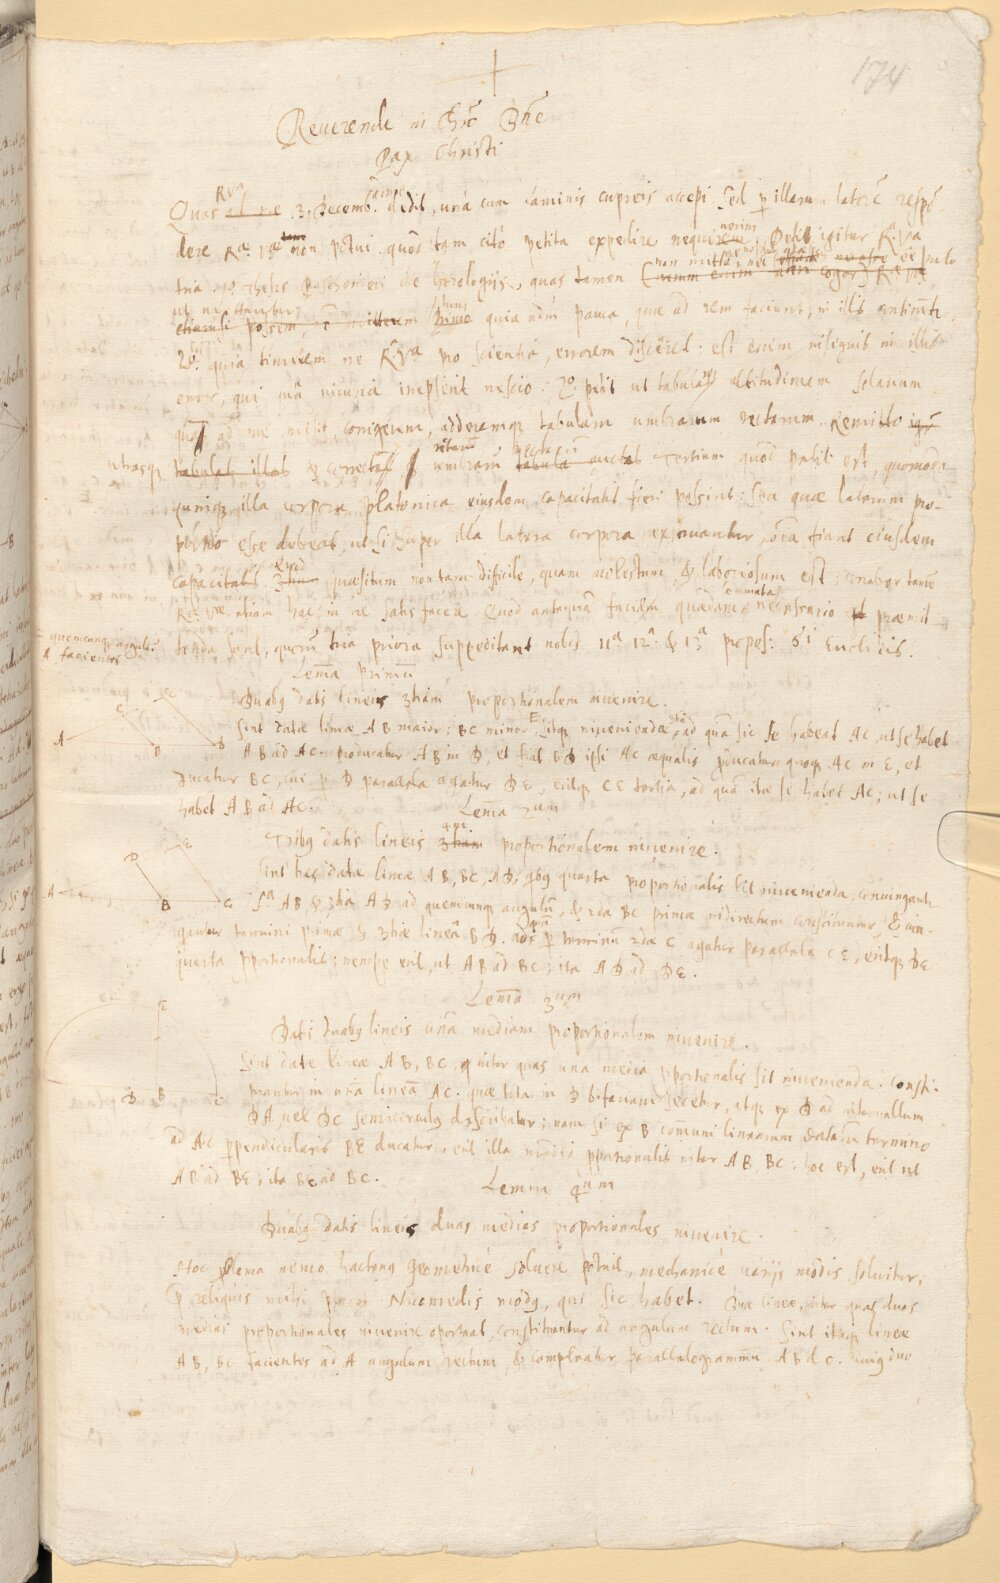 174
Reuerende in Chro Dne
Pax Christi
Quas ad me Rva 3. Decemb. dedit, unà cum laminis cupreis accepi. Sed p illarum latorē respō
dere Rae Vae non potui, quòd tam citò petita expedire nequirem. Petit igitur R. Va
theses de Horologiis, quas tamen
etiamsi possem quia admodum pauca, quae ad rem faciunt, in illis continētr.
2o. quia timerem ne R. Va pro scientia, errorem disceret: est enim insignis in illis
error, qui quâ incuria inepserit nescio. 2o petit ut tabulam altitudinem solarium
quam ad me misit corrigerem, adderemqz tabulam umbrarum rectarum. Remitto igr̄
utrasqz tabulas illas & correctas umbrarū Tertium quòd petit est, quomodo
cunqz illa corpora platonica eiusdem capacitatis fieri possint: seu quae laterum pro-
portio esse debeat, ut si super illa latera corpora extruantur, oīa fiant eiusdem
capacitatis. Quod quaesitum non tam difficile, quam molestum, & laboriosum est: conabor tamē
Rae Vae etiam hac in re satisfacere. Quod antequā faciam quaedam lemmata necessario praemit
tenda sunt, quorū tria priora suppeditant nobis 11a 12a & 13a propos: 6i Euclidis.
quemcunqz angulū
A facientes
Lem̄a primū
Duabus datis lineis 3tiam proportionalem inuenire.
Sint datae lineae AB maior: BC minor, sitqz inuenienda 3tia, ad quā sic se habeat AC, ut se habet
AB ad AC. producatur AB in D, et fiat BD ipsi AC aequalis producatur quoqz AC in E, et
ducatur BC, cui p D parallela agatur DE, eritqz CE tertia, ad quā ita se habet AC, ut se
habet AB ad AC.
Lem̄a 2um
Tribus datis lineis 4am proportionalem inuenire.
Sint tres datae lineae AB, BC, AD, quibus quarta proportionalis sit inuenienda, coniungantur
1a AB, & 3tia AD ad quemcunqz angulū, & 2da BC primae in directum constituatur & iun-
gantur termini primae & 3tiae lineâ BD. cui p terminū 2dae C agatur parallela CE, eritqz DE
quarta pportionalis; nempe erit, ut AB ad BC; ita AD ad DE.
Lem̄a 3um
Datis duabus lineis unā mediam proportionalem inuenire.
Sint datae lineae AB, BC, inter quas una media pportionalis sit inuenienda. Consti-
tuantur in unā lineā AC. quae tota in D bifariam secetur, atqz ex D ad interuallum
DA uel DC semicirculus describatur; nam si ex B com̄uni linearum datarū termino
ad AC perpendicularis BE ducatur, erit illa media pportionalis inter AB, BC: hoc est, erit ut
AB ad BE; ita BE ad BC.
Lemma 4um
Duabus datis lineis duas medias proportionales inuenire.
Hoc pblema nemo hactenus Geometricè soluere potuit, mechanicè uarijs modis soluitur;
p reliquis mihi placet Nicomedis modus, qui sic habet. Duae lineae, inter quas duas
medias proportionales inuenire oporteat, constituantur ad angulum rectum. Sint itaqz lineae
AB, BC facientes ad A angulum rectum, & compleatur parallelogrammū ABdC. cuius duo
A
B
C
D
E
A
B
C
D
E
D
B
C
E